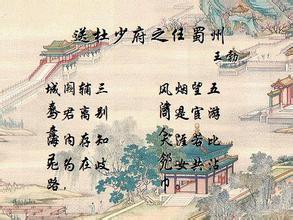 送杜少府之任蜀州
王勃
城阙辅三 风烟望五
君离别 同是宦游
海内存知 天涯若比
无为在歧 儿女共沾
路， 巾